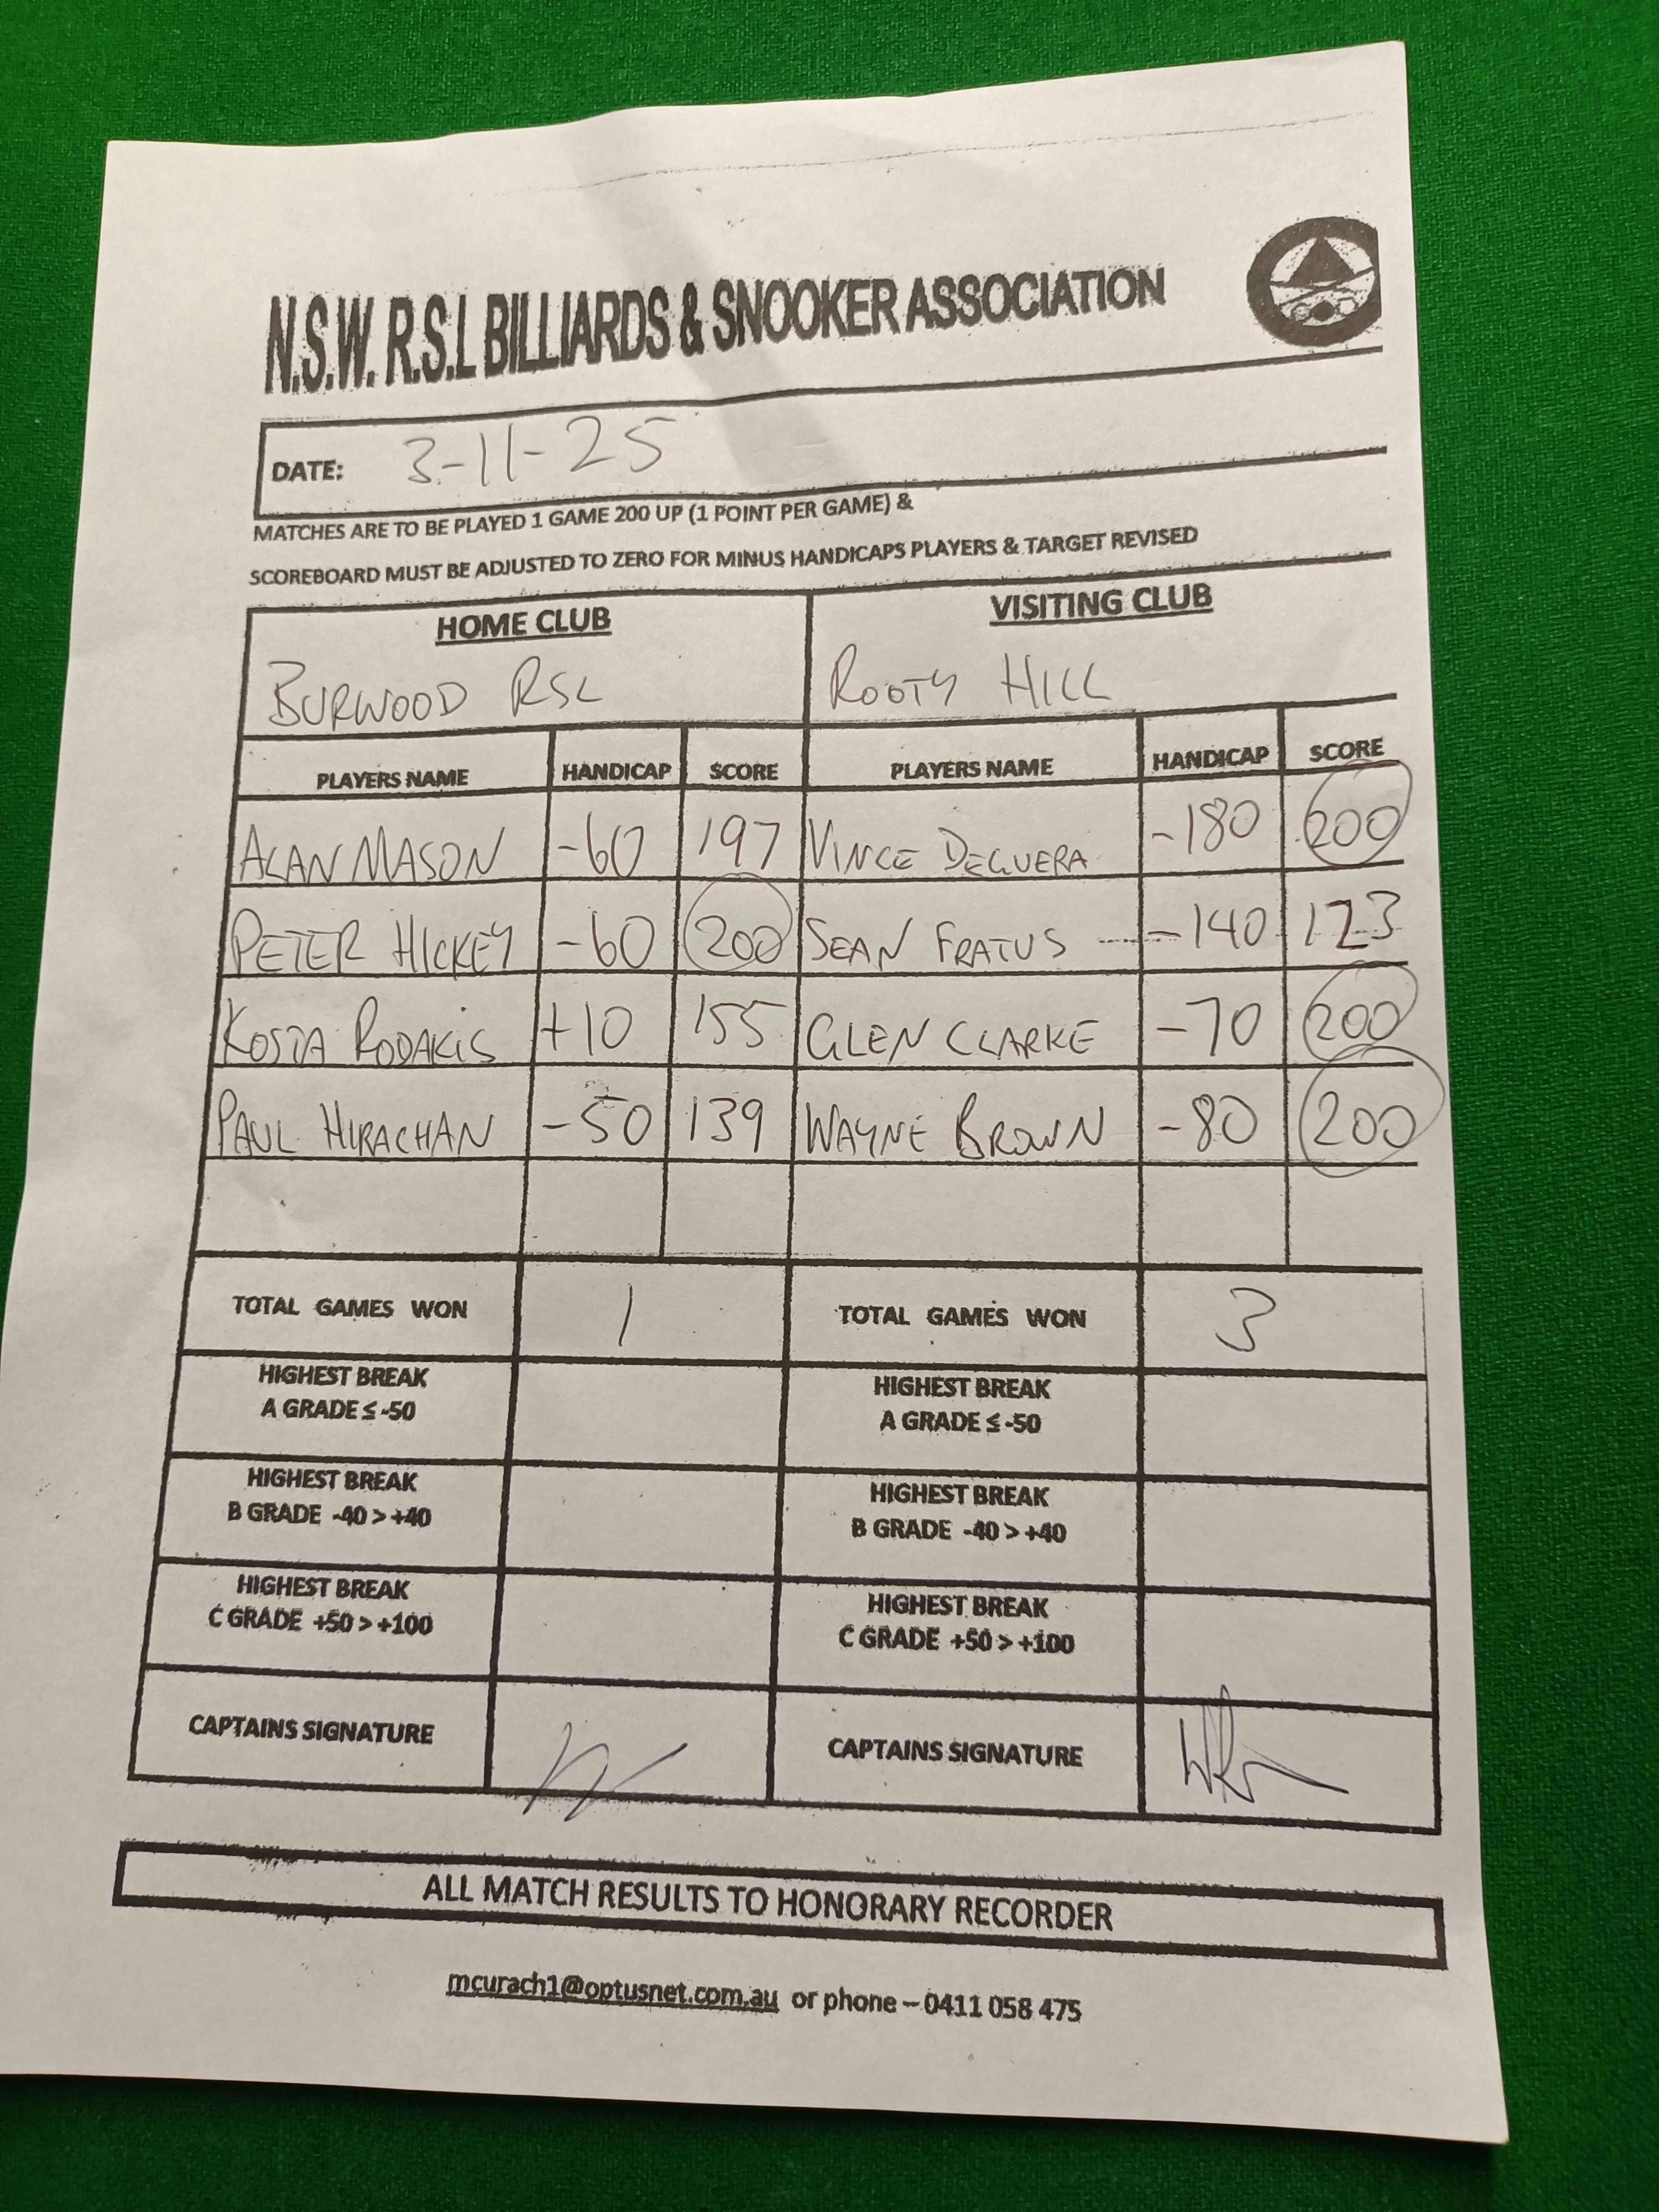 N.S.W. R.S.L BILLIARDS & SNOOKER ASSOCIATION
DATE: 3-11-25
MATCHES ARE TO BE PLAYED 1 GAME 200 UP (1 POINT PER GAME) &
SCOREBOARD MUST BE ADJUSTED TO ZERO FOR MINUS HANDICAPS PLAYERS & TARGET REVISED
HOME CLUB VISITING CLUB
BURWOOD RSL ROOTY HILL
PLAYERS NAME HANDICAP SCORE PLAYERS NAME HANDICAP SCORE
ALAN MASON -60 197 VINCE DEGUERA -180 200
PETER HICKEY -60 200 SEAN FRATUS -140 123
KOSTA RODAKIS +10 155 GLEN CLARKE -70 200
PAUL HIRACHAN -50 139 WAYNE BROWN -80 200
TOTAL GAMES WON 1 TOTAL GAMES WON 3
HIGHEST BREAK HIGHEST BREAK
A GRADE ≤ -50 A GRADE ≤ -50
HIGHEST BREAK HIGHEST BREAK
B GRADE -40 > +40 B GRADE -40 > +40
HIGHEST BREAK HIGHEST BREAK
C GRADE +50 > +100 C GRADE +50 > +100
CAPTAINS SIGNATURE CAPTAINS SIGNATURE
ALL MATCH RESULTS TO HONORARY RECORDER
mcurach1@optusnet.com.au or phone – 0411 058 475